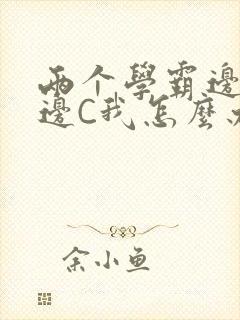 两个學霸邊
邊C我怎麼
余小鱼